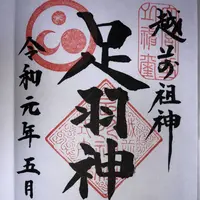 越前祖神
足羽神
令和元年五月